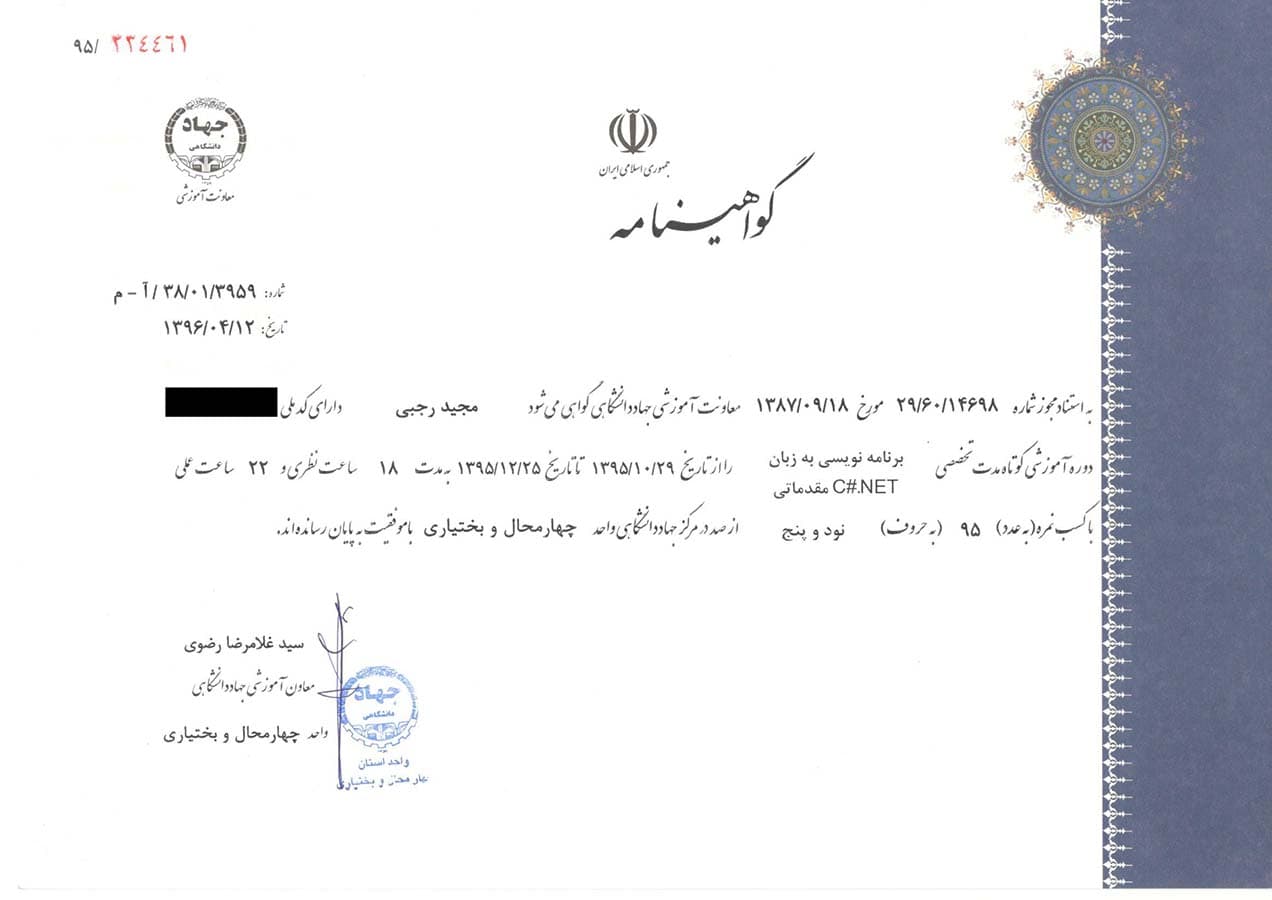 ۹۵/ ۲۲٤٤٦۱
جهاد
دانشگاهی
معاونت آموزشی
جمهوری اسلامی ایران
گواهینامه
شماره: ۳۸/۰۱/۳۹۵۹ / آ - م
تاریخ: ۱۳۹۶/۰۴/۱۲
به استناد مجوز شماره ۲۹/۶۰/۱۴۶۹۸ مورخ ۱۳۸۷/۰۹/۱۸ معاونت آموزشی جهاددانشگاهی گواهی می شود مجید رجبی دارای کد ملی
دوره آموزشی کوتاه مدت تخصصی برنامه نویسی به زبان
C#.NET مقدماتی
را از تاریخ ۱۳۹۵/۱۰/۲۹ تا تاریخ ۱۳۹۵/۱۲/۲۵ به مدت ۱۸ ساعت نظری و ۲۲ ساعت عملی
با کسب نمره (به عدد) ۹۵ (به حروف) نود و پنج از صد در مرکز جهاددانشگاهی واحد چهارمحال و بختیاری با موفقیت به پایان رسانده‌اند.
سید غلامرضا رضوی
معاون آموزشی جهاددانشگاهی
واحد چهارمحال و بختیاری
جهاد
دانشگاهی
واحد استان
چهار محال و بختیاری